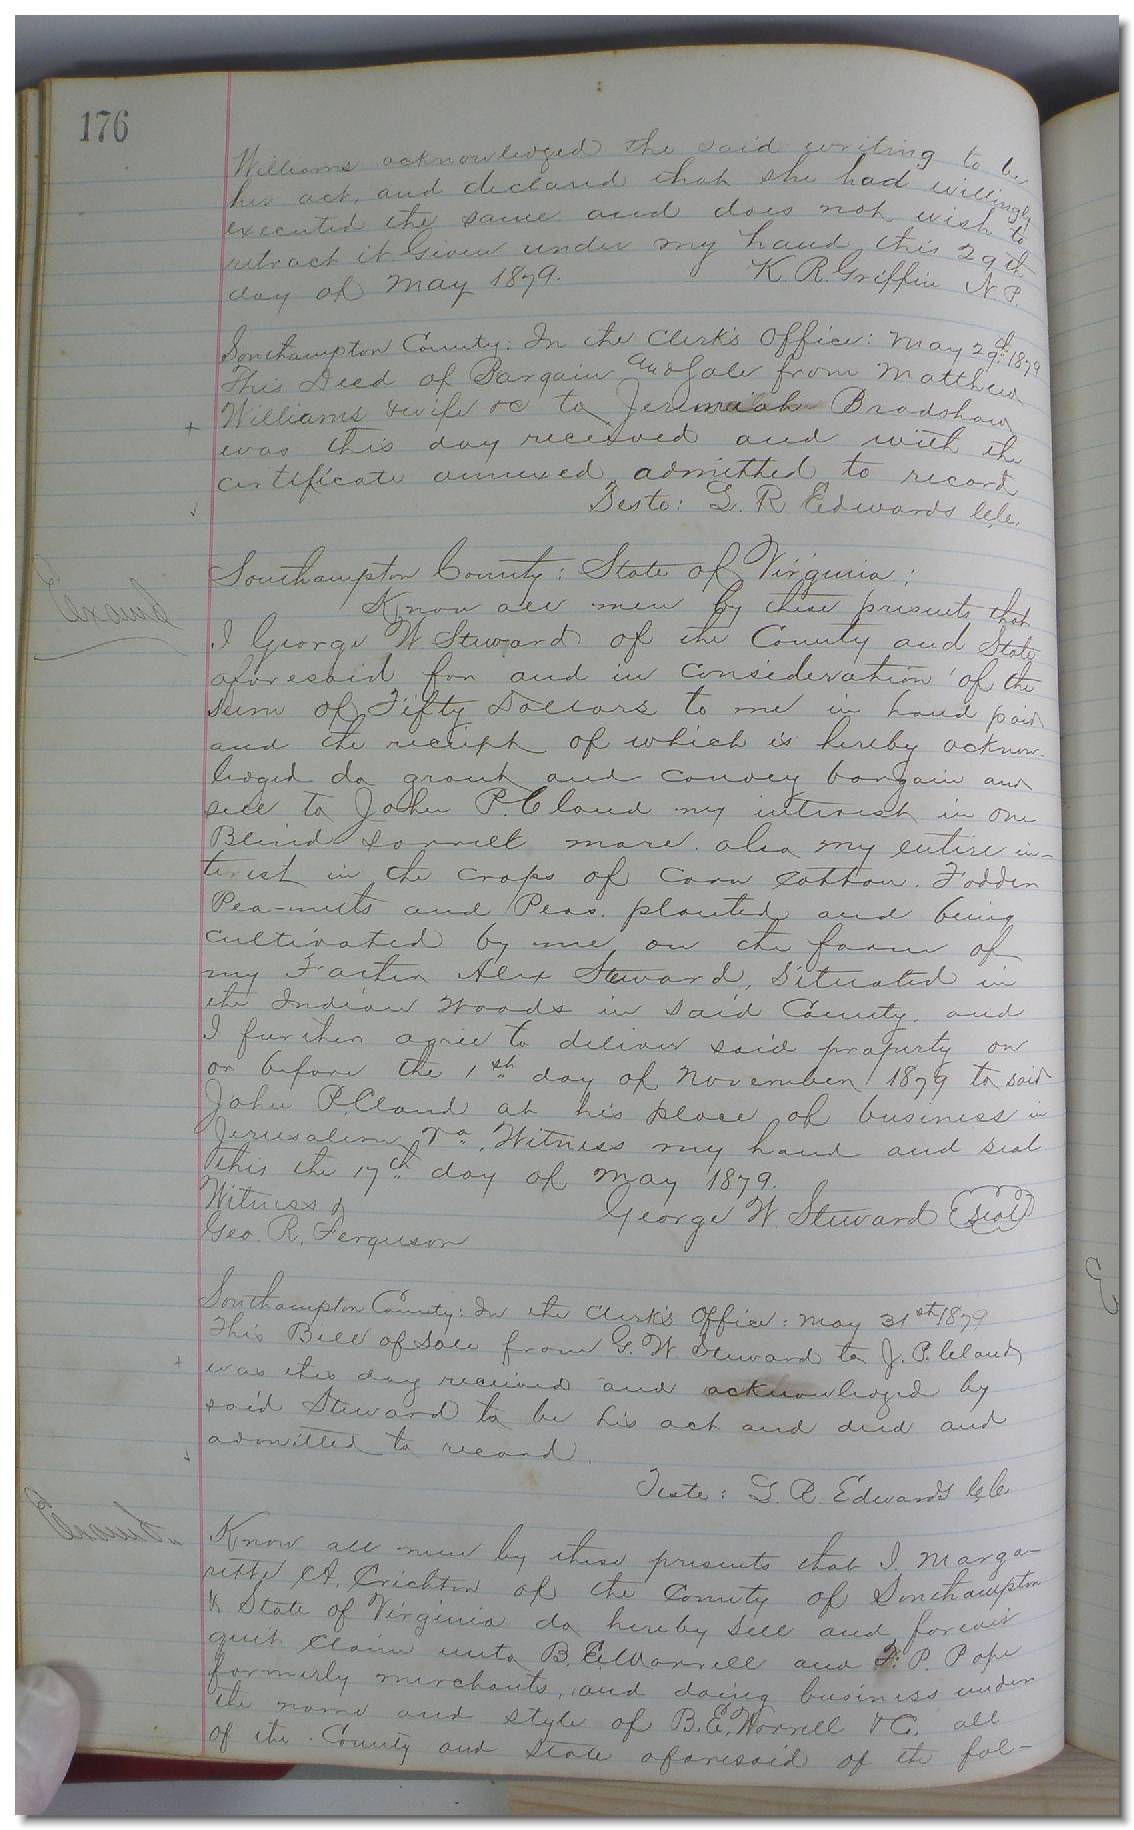 176
Williams acknowledged the said writing to be
his act, and declared that she had willingly
executed the same and does not wish to
retract it Given under my hand this 29th
day of May 1879. K. R. Griffin N. P.
Southampton County: In the Clerk's Office: May 29th 1879
This Deed of Bargain and Sale from Matthew
Williams & wife &c to Jeremiah Bradshaw
was this day received and with the
certificate annexed admitted to record
Teste: L. R. Edwards C.C.
Southampton County: State of Virginia:
Examd
Know all men by these presents that
I George W Steward of the County and State
aforesaid for and in consideration of the
sum of Fifty Dollars to me in hand paid
and the receipt of which is hereby acknow-
ledged do grant and convey bargain and
sell to John P. Claud my interest in one
Blind sorrell mare. also my entire in-
terest in the crops of Corn Cotton. Fodder
Pea-nuts and Peas. planted and being
cultivated by me on the farm of
my Father Alex Steward, Situated in
the Indian Woods in said County. and
I further agree to deliver said property on
or before the 1st day of November 1879 to said
John P. Claud at his place of business in
Jerusalem Va. Witness my hand and seal
this the 17th day of May 1879.
Witness
George W. Steward (seal)
Geo. R. Ferguson
Southampton County: In the Clerk's Office: May 31st 1879
This Bill of Sale from G. W. Steward to J. P. Claud
was this day received and acknowledged by
said Steward to be his act and deed and
admitted to record.
Teste: L. R. Edwards C.C.
Examd
Know all men by these presents that I. Marga-
rette A. Crichton of the County of Southampton
& State of Virginia do hereby sell and forever
quit claim unto B. E. Worrell and F. P. Pope
formerly merchants, and doing business under
the name and style of B. E. Worrell & Co. all
of the County and State aforesaid of the fol-